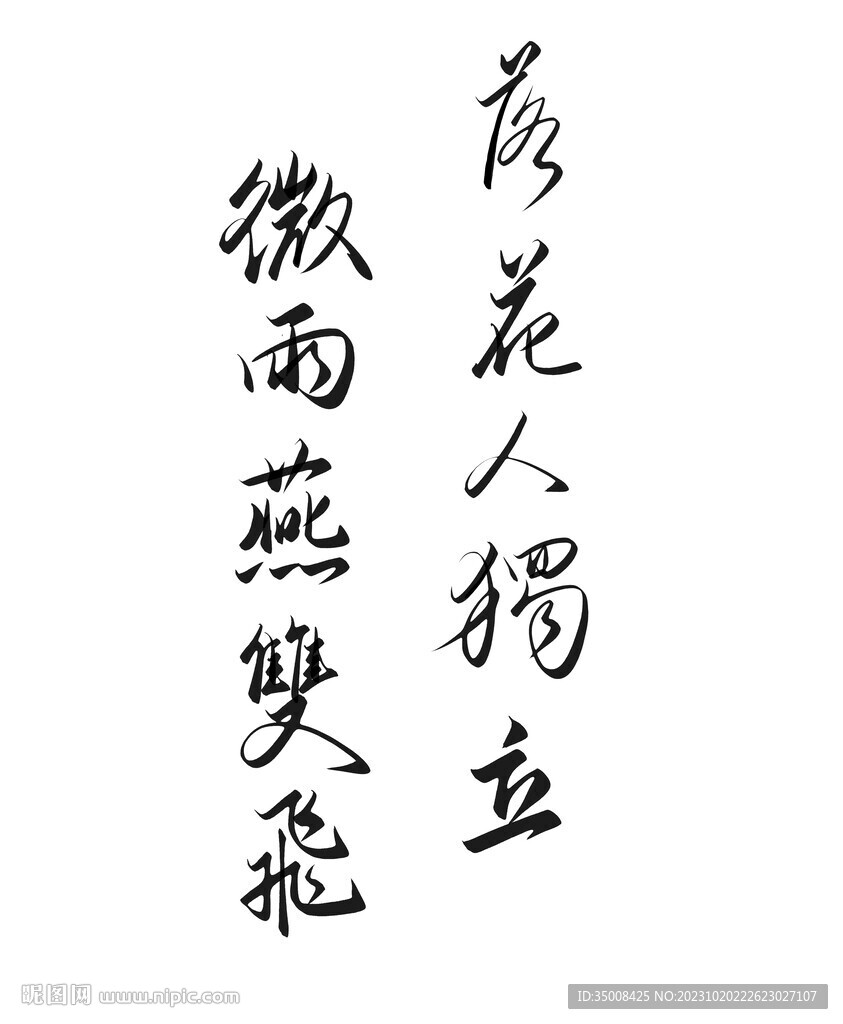 落花人獨立
微雨燕雙飛
昵图网 www.nipic.com
ID:35008425 NO:20231020222623027107